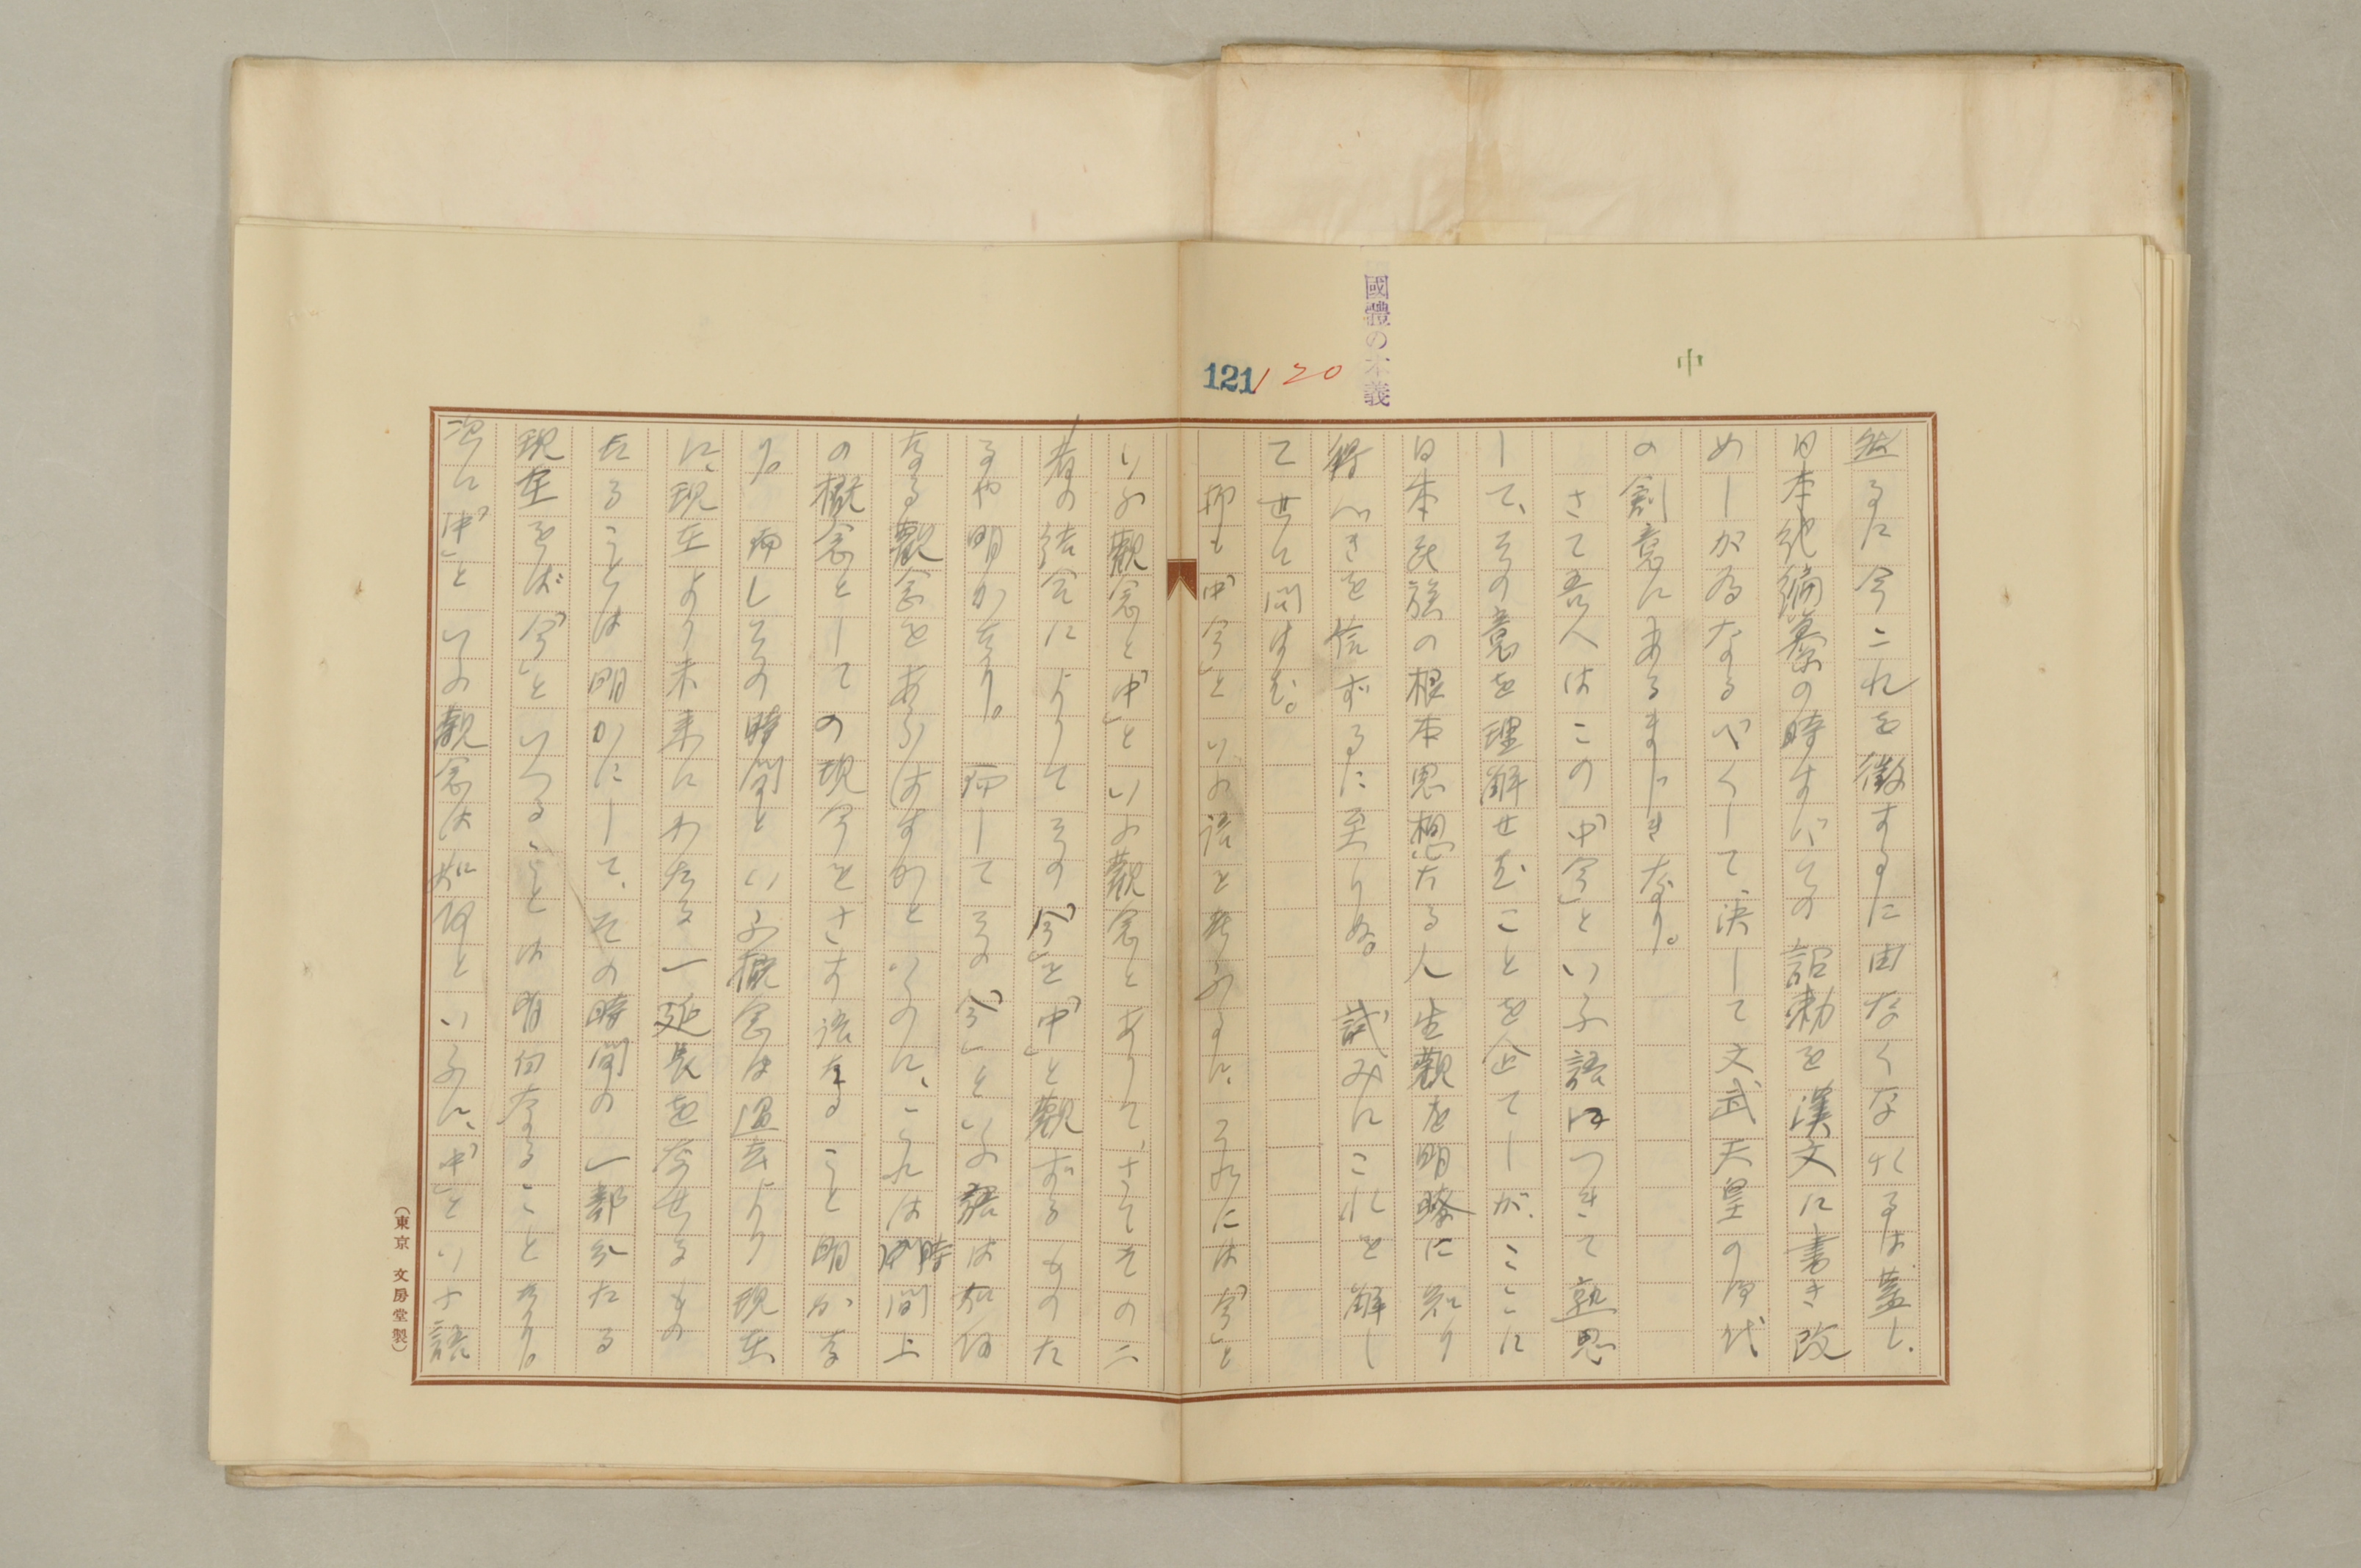 中
國體の本義
121
120
然るに今これを徴するに由なくなれるは蓋し、
日本紀編纂の時すべての詔勅を漢文に書き改
めしが為なるべくして、決して文武天皇の御代
の創意にあるまじきなり。
さて吾人はこの「中今」といふ語につきて熟思
して、その意を理解せむことを企てしが、ここに
日本民族の根本思想たる人生觀を明瞭に知り
得べきを信ずるに至りぬ。試みにこれを解し
て世に問はむ。
抑も「中今」といふ語を考ふるに、それには「今」と
いふ觀念と「中」といふ觀念とありて、さてその二
者の結合によりてその「今」を「中」と觀ずるものた
るや明かなり。而してその「今」といふ語は如何
なる觀念をあらはすかといふに、これは時間上
の概念としての現今をさす語なること明かな
り。而してその時間といふ概念は過去より現在
に、現在より未來にわたる一延長をなせるもの
たることは明かにして、その時間の一部分たる
現在をば「今」といへることは自何なることなり。
次に「中」といふ觀念は如何といふに、「中」といふ語
(東京 文房堂製)